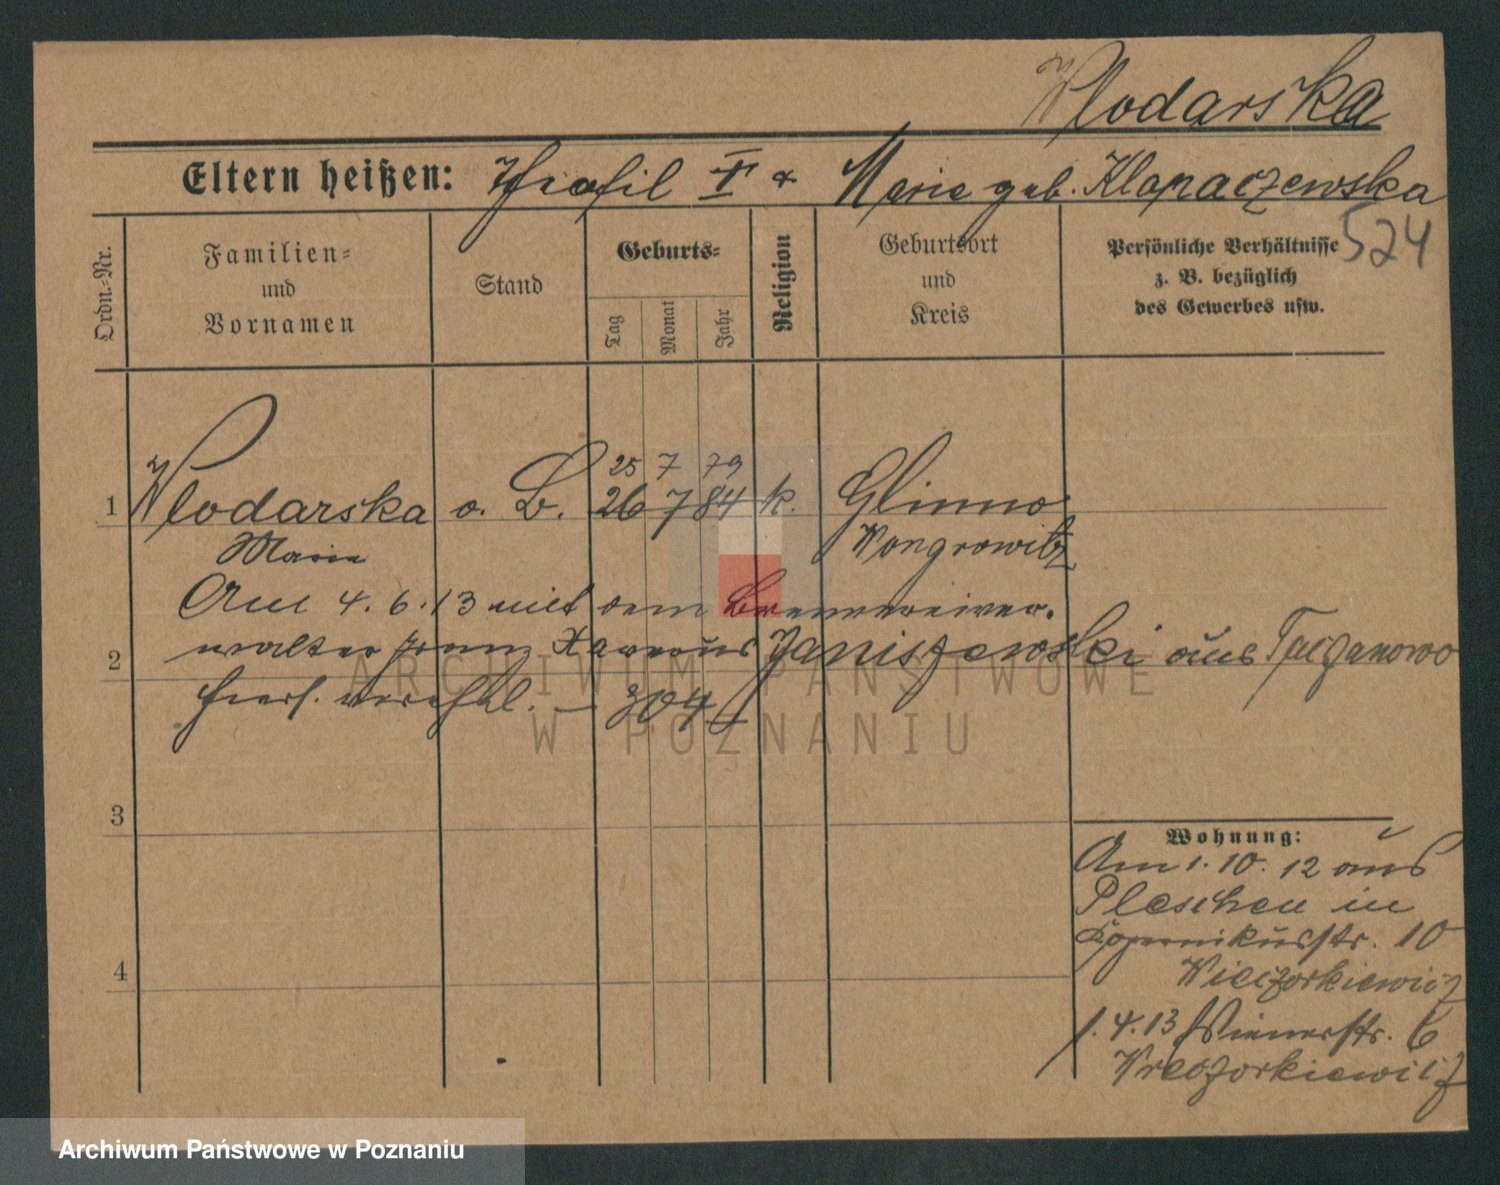 Wlodarska
Eltern heißen: Theofil † & Marie geb. Klopaczewska
524
Ordn.-Nr.
Familien-
und
Vornamen
Stand
Geburts-
Tag
Monat
Jahr
Religion
Geburtsort
und
Kreis
Persönliche Verhältnisse
z. B. bezüglich
des Gewerbes usw.
25 7 79
1 Wlodarska o. B. 26 7 84 k. Glinno
Marie Wongrowitz
Am 4. 6. 13 mit dem Brennereiver-
2 walter Franz Xaverius Janiszewski aus
hies. verehel. – 304
ARCHIWUM PAŃSTWOWE
W POZNANIU
3
Wohnung:
Am 1. 10. 12 aus
Pleschen in
Kopernikusstr. 10
4
Wieczorkiewicz
1. 4. 13 Wienerstr. 6
Wieczorkiewicz
Archiwum Państwowe w Poznaniu